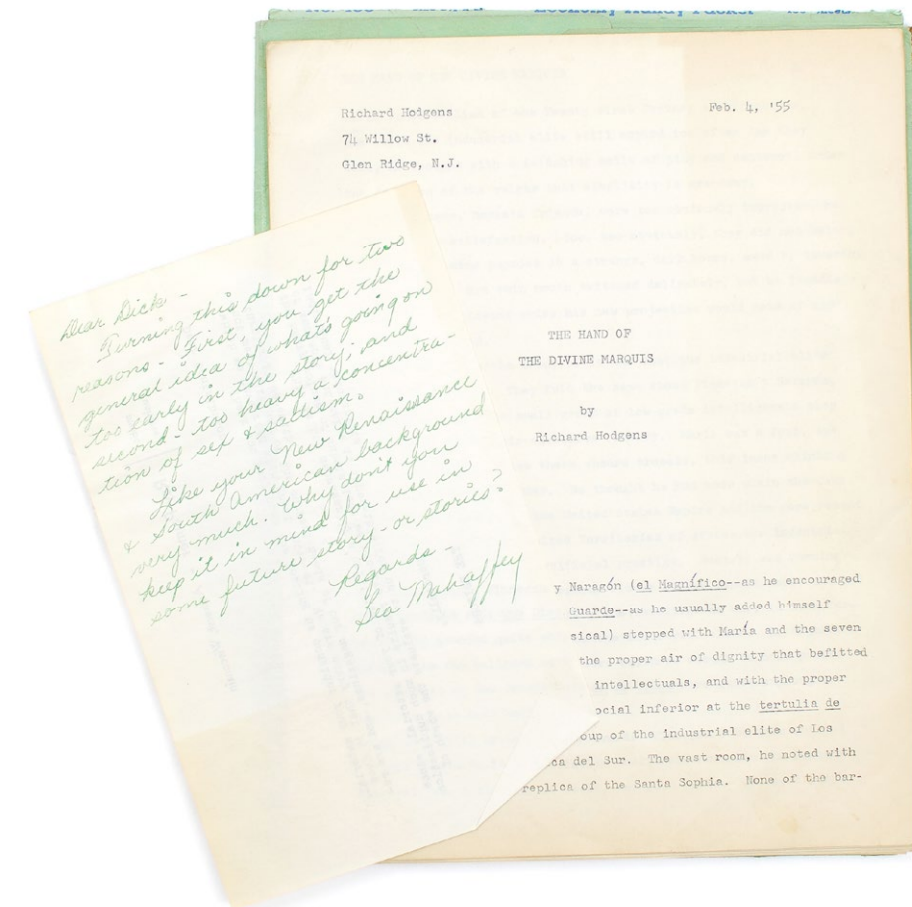 Richard Hodgens
Feb. 4, '55
74 Willow St.
Glen Ridge, N.J.
THE HAND OF
THE DIVINE MARQUIS
by
Richard Hodgens
y Naragón (el Magnífico--as he encouraged
Guarde--as he usually added himself
sical) stepped with María and the seven
the proper air of dignity that befitted
intellectuals, and with the proper
ocial inferior at the tertulia de
oup of the industrial elite of Los
ca del Sur. The vast room, he noted with
replica of the Santa Sophia. None of the bar-
Dear Dick -
Turning this down for two
reasons - First, you get the
general idea of what's going on
too early in the story; and
second - too heavy a concentra-
tion of sex & sadism.
Like your New Renaissance
& South American background
very much. Why don't you
keep it in mind for use in
some future story - or stories?
Regards -
Bea Mahaffey